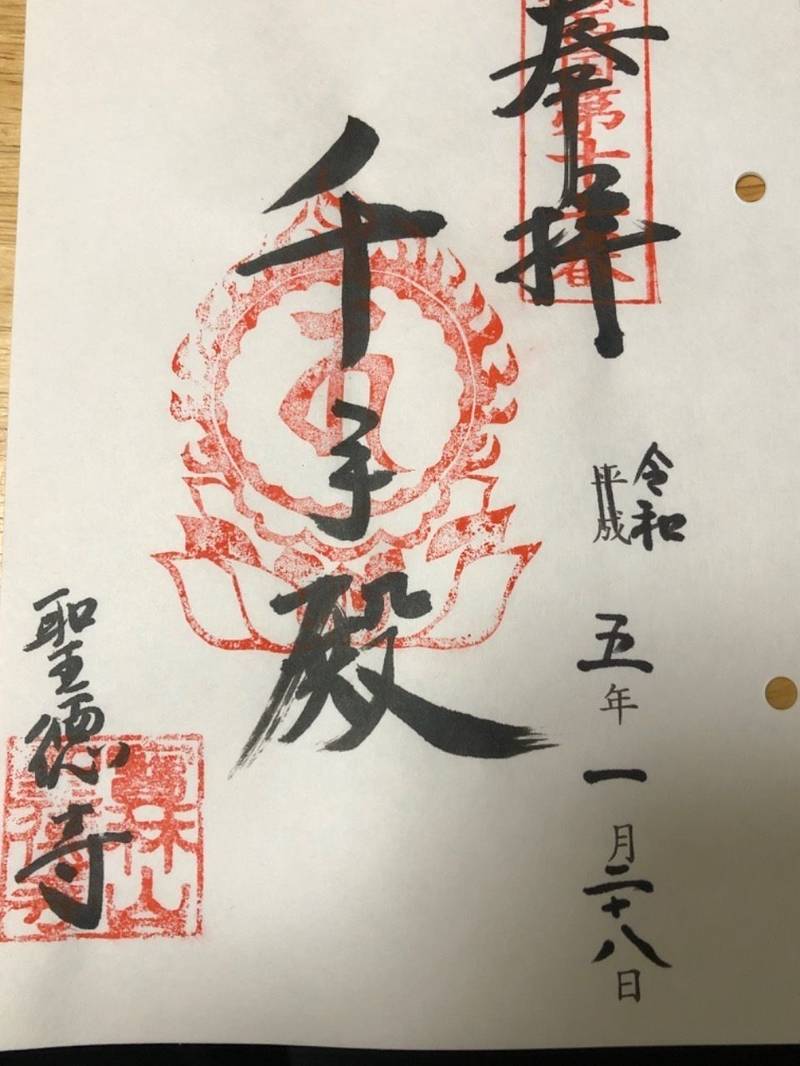 奉拝
国第十
番
令和
平成
五年一月二十八日
千手殿
聖徳寺